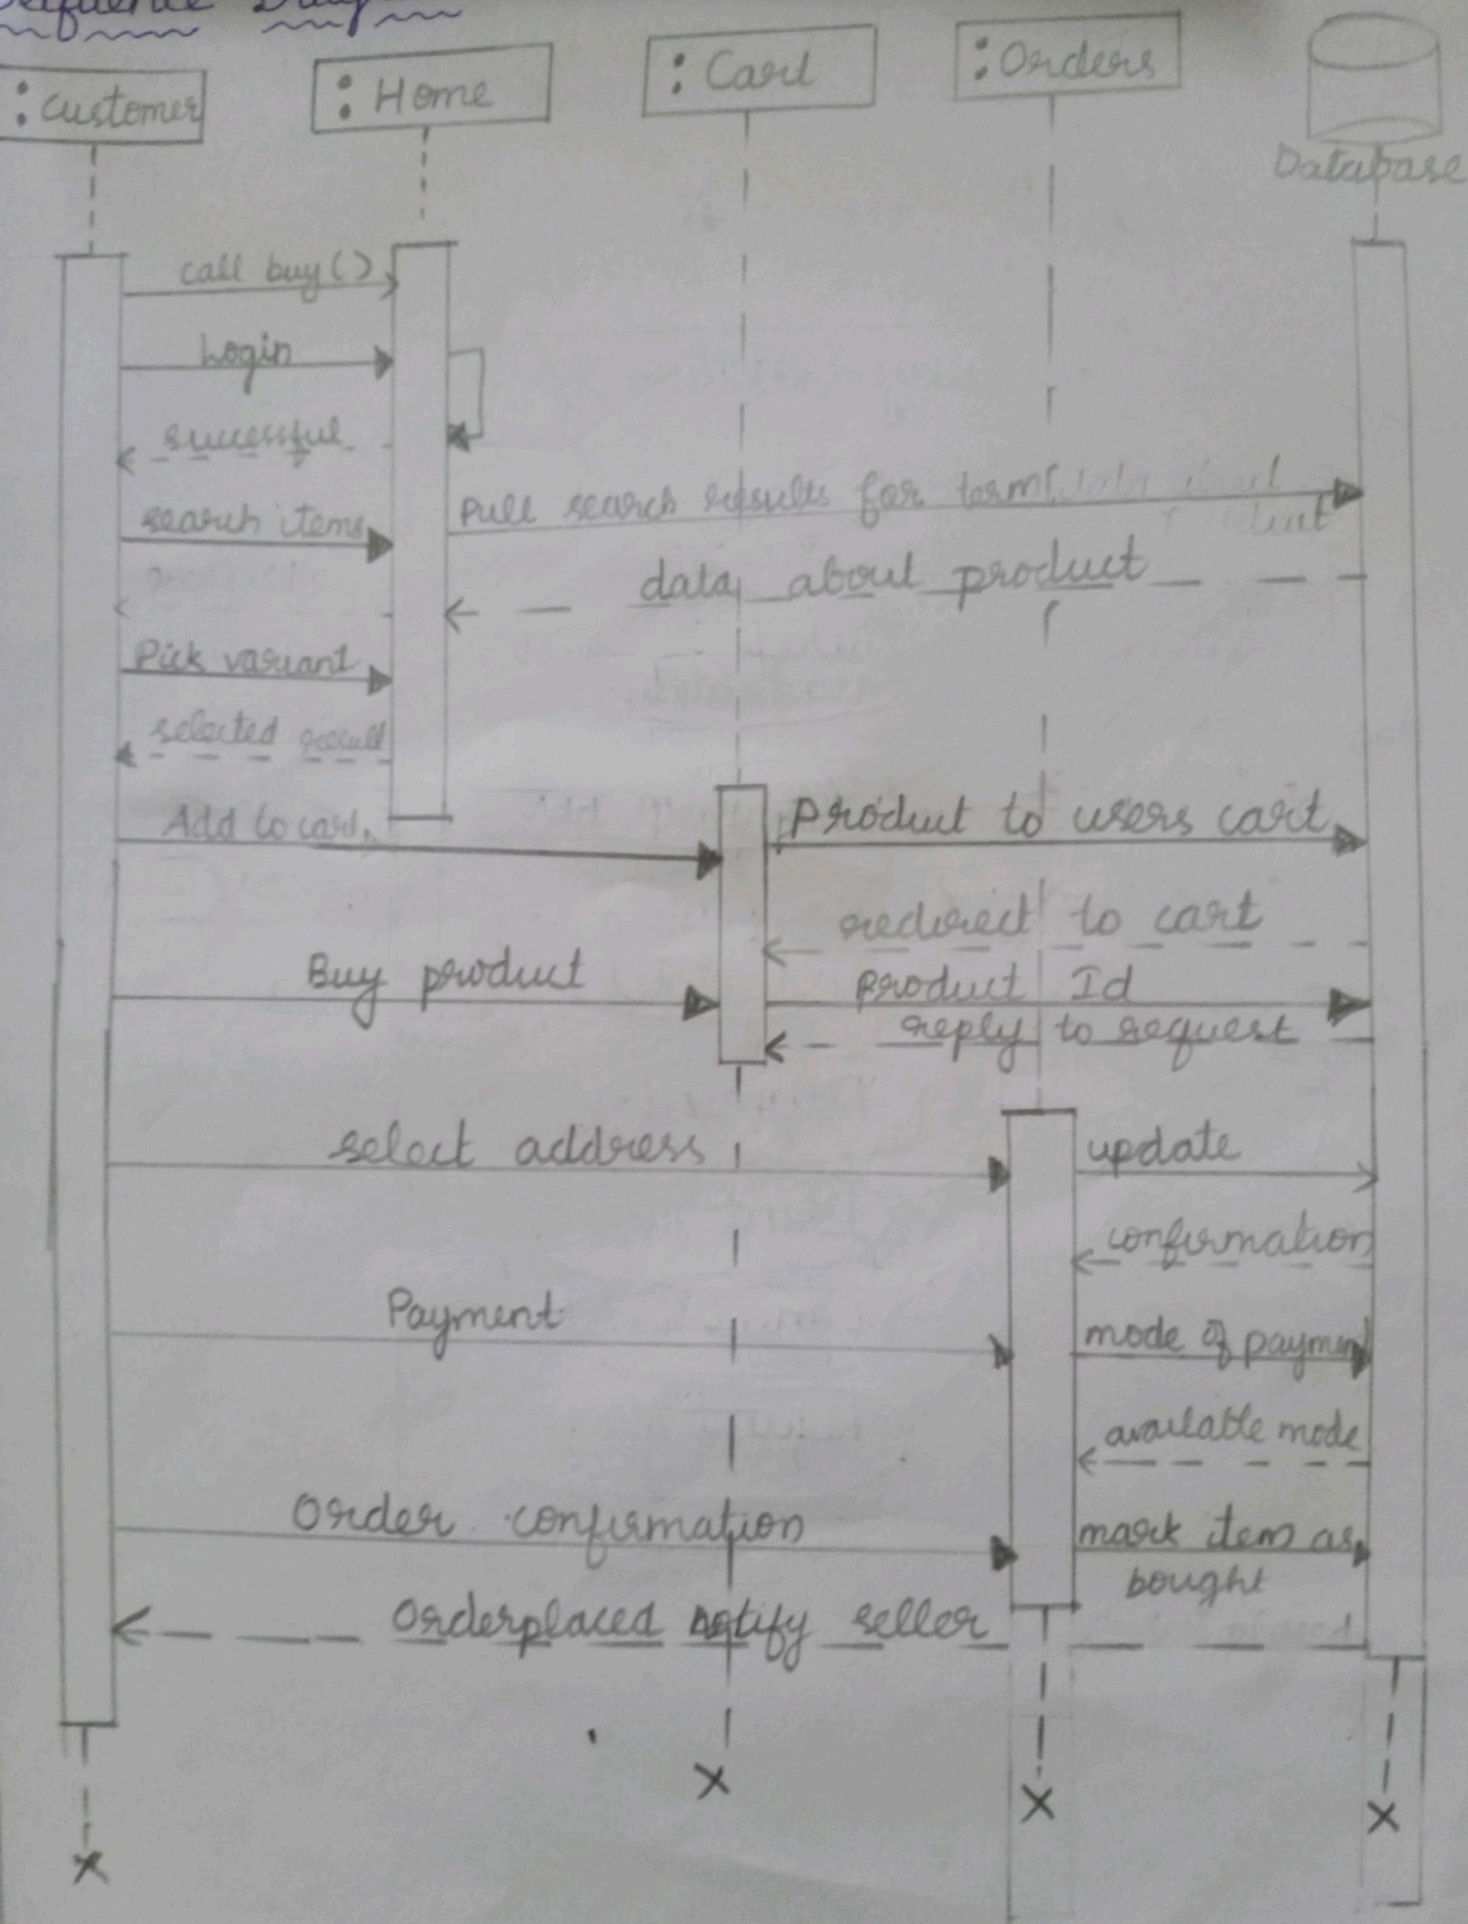 Sequence
: Customer
: Home
: Cart
: Orders
Database
call buy()
Login
successful
search items
Pull search results for term
data about product
Pick variant
selected result
Add to cart
Product to users cart
redirect to cart
Buy product
Product Id
reply to request
select address
update
confirmation
Payment
mode of payment
available mode
Order confirmation
mark item as
bought
Orderplaced notify seller